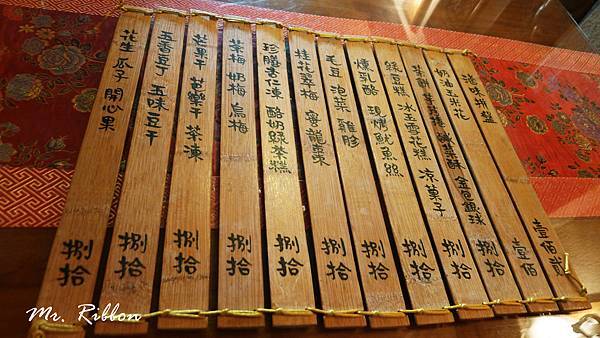 滷味拼盤 壹佰貳
奶油玉米花 金包銀球 壹佰
茶餅 捌拾
綠豆糕 冰玉雪花糕 涼菓子 捌拾
燻乳酪 現烤魷魚絲 捌拾
毛豆 泡菜 雞胗 捌拾
桂花翠梅 龍棗 捌拾
杏仁凍 酪奶綠茶糕 捌拾
茶梅 奶梅 烏梅 捌拾
芒果干 芭樂干 茶凍 捌拾
五香豆丁 五味豆干 捌拾
花生 瓜子 開心果 捌拾
Mr. Ribbon